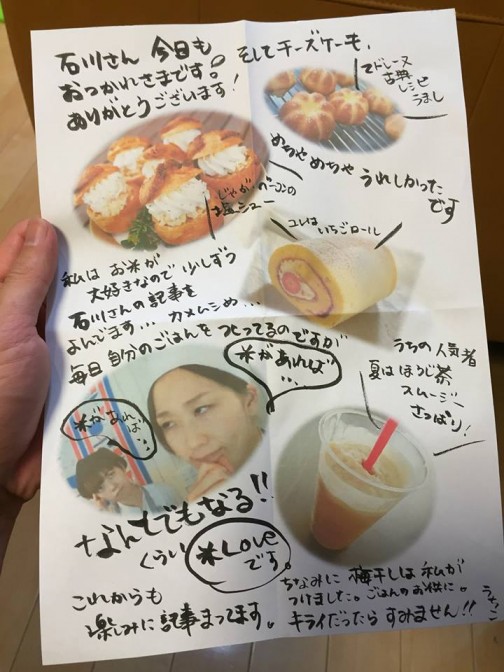 石川さん 今日も
おつかれさまです。
ありがとうございます!
そしてチーズケーキ、
マドレーヌ
古典
レシピ
うまし
めちゃめちゃ うれしかった
です
じゃがベーコンの
塩シュー
コレは いちごロール
私は お米が
大好きなので 少しずつ
石川さんの記事を
よんでます… カメムシめ…
毎日 自分のごはんを つくってるのですが
米があれば
…
米があれば…
なんでもなる!!
くらい
米Love
です。
うちの 人気者
夏は ほうじ茶
スムージー
さっぱり!
これからも
楽しみに 記事まってます。
ちなみに 梅干しは 私が
つけました。ごはんのお供に。
キライだったら すみません!!